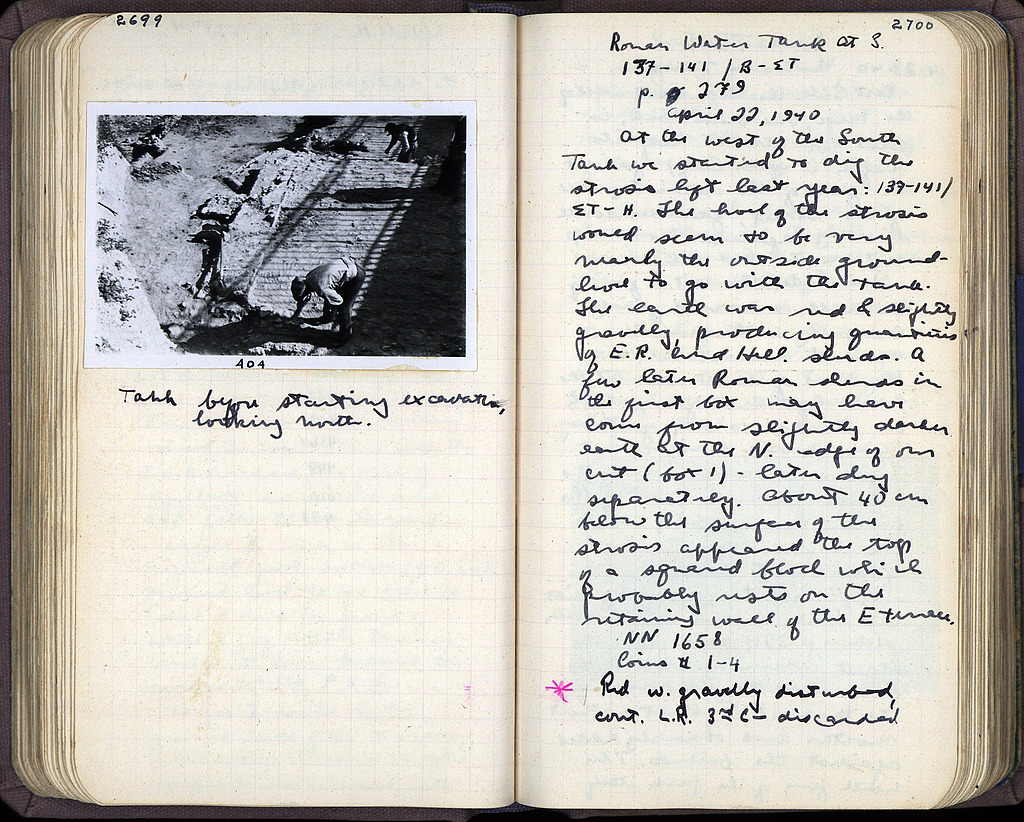 2699
404
Tank before starting excavation,
looking north.
2700
Roman Water Tank at S.
137-141 / B-ΣT
p. 279
April 22, 1940
At the west of the South
Tank we started to dig the
strosis left last year: 137-141/
ΣT-H. The level of the strosis
would seem to be very
nearly the outside ground-
level to go with the tank.
The earth was red & slightly
gravelly, producing quantities
of E.R. and Hell. sherds. A
few later Roman sherds in
the first box may have
come from slightly darker
earth at the N. edge of our
cut (box 1) - later dug
separately. About 40 cm
below the surface of the
strosis appeared the top
of a squared block which
probably rests on the
retaining wall of the E terrace.
NN 1658
Coins # 1-4
Red w. gravelly disturbed,
cont. L.R. 3rd C - discarded